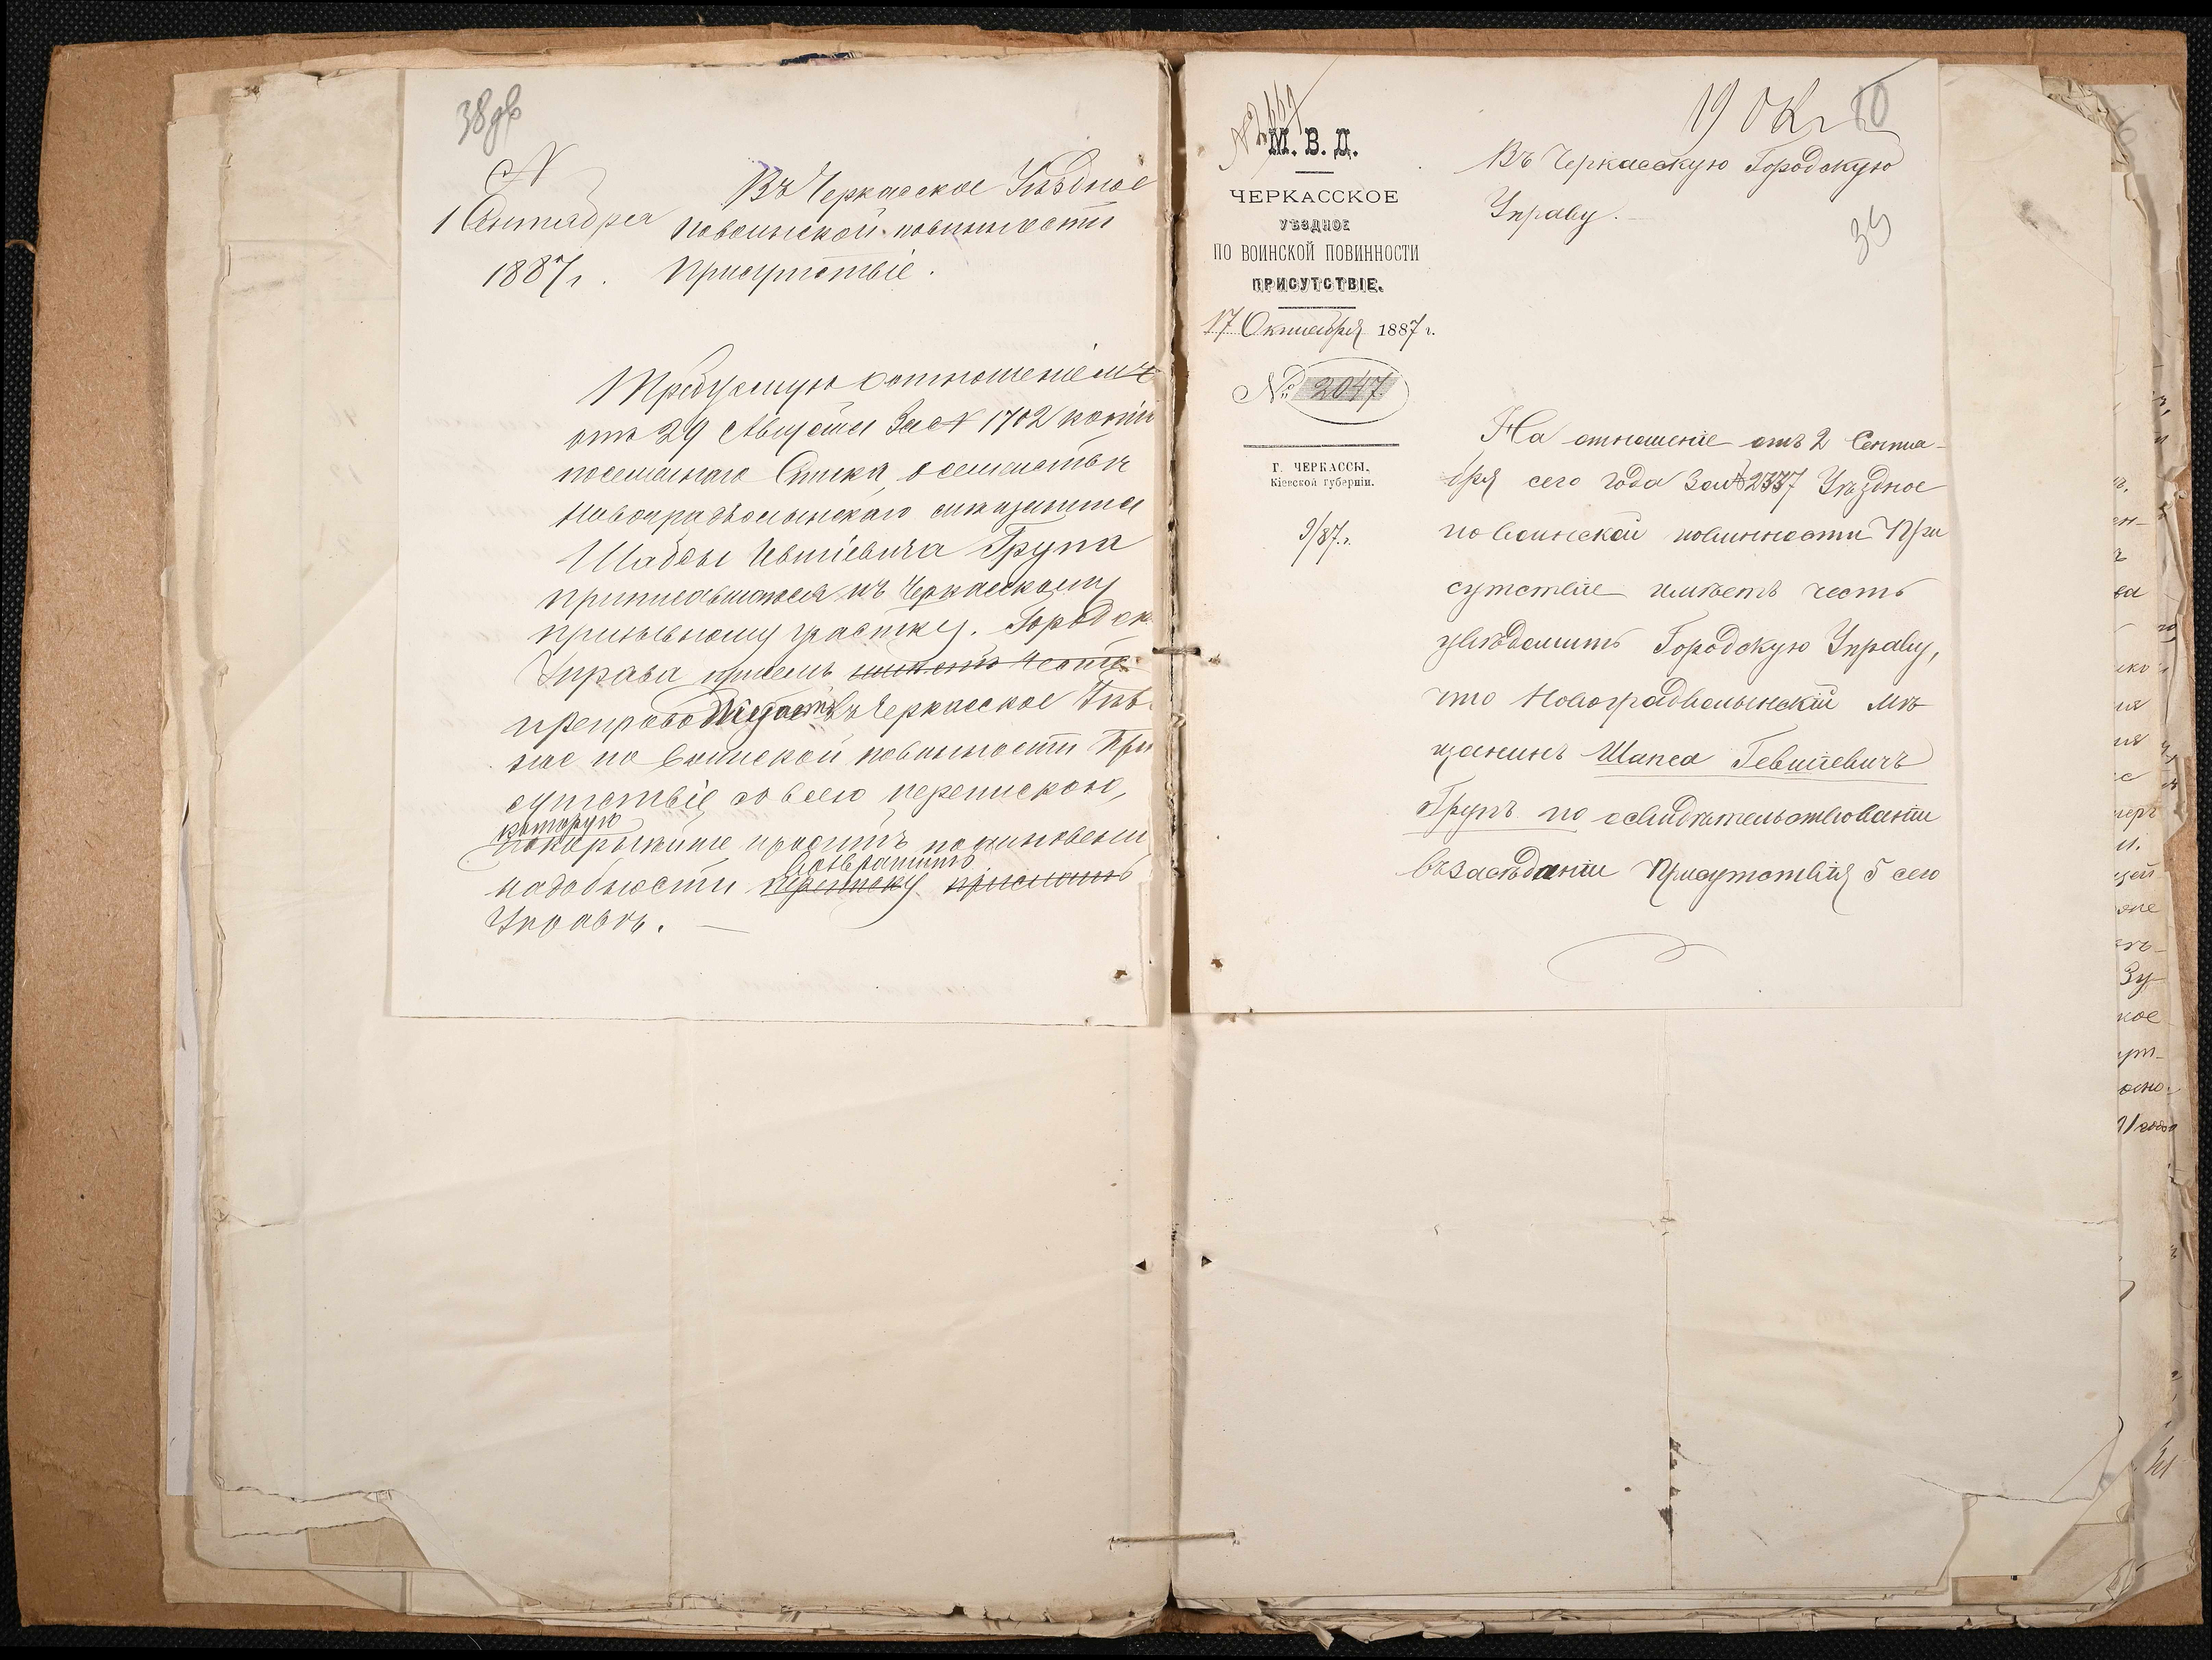 38 дв
№
1 Сентября
1887 г.
Въ Черкасское Уѣздное
по воинской повинности
Присутствіе.
Требуемую отношеніемъ
отъ 29 Августа за № 1702 копію
посемейнаго списка о семействѣ
Новоградволынскаго мѣщанина
Гевшіевича Група
приписавшагося къ Черкасскому
призывному участку. Городск.
Управа имѣетъ честь
препровождаетъ въ Черкасское Уѣз
ное по воинской повинности При
сутствіе со всею перепискою,
которую
покорнѣйше проситъ по миновеніи
возвратить
надобности переписку прислать
Управѣ. —
19 Окт 10
39
М. В. Д.
ЧЕРКАССКОЕ
УѢЗДНОЕ
ПО ВОИНСКОЙ ПОВИННОСТИ
ПРИСУТСТВІЕ.
17 Октября 1887 г.
№ 2047
Г. ЧЕРКАССЫ,
Кіевской губерніи.
9/87 г.
Въ Черкасскую Городскую
Управу. —
На отношеніе отъ 2 Сентя-
бря сего года за № 2337 Уѣздное
по воинской повинности При
сутствіе имѣетъ честь
увѣдомить Городскую Управу,
что Новоградволынскій мѣ
щанинъ Шапса Гевшіевичъ
Групъ по освидѣтельствованіи
въ засѣданіи Присутствія 5 сего